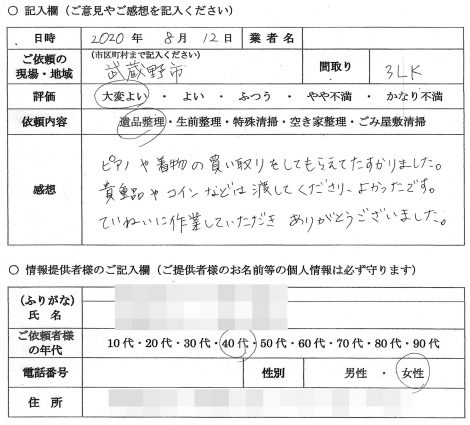 ○ 記入欄（ご意見やご感想を記入ください）
日時 2020 年 8 月 12 日 業者名
ご依頼の現場・地域 (市区町村まで記入ください) 武蔵野市 間取り 3LK
評価 大変よい ・ よい ・ ふつう ・ やや不満 ・ かなり不満
依頼内容 遺品整理・生前整理・特殊清掃・空き家整理・ごみ屋敷清掃
感想
ピアノや着物の買い取りをしてもらえてたすかりました。
貴重品やコインなどは渡してくださり、よかったです。
ていねいに作業していただき ありがとうございました。
○ 情報提供者様のご記入欄（ご提供者様のお名前等の個人情報は必ず守ります）
（ふりがな）
氏 名
ご依頼者様の年代 10代・20代・30代・40代・50代・60代・70代・80代・90代
電話番号 性別 男性 ・ 女性
住 所